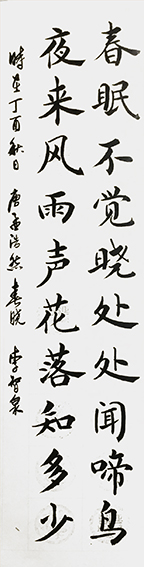 春眠不觉晓处处闻啼鸟
夜来风雨声花落知多少
时在丁酉秋日 唐孟浩然春晓 李智泉